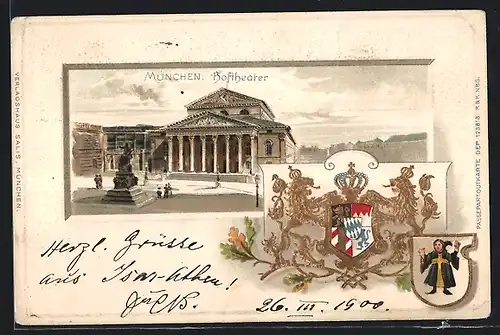 MÜNCHEN. Hoftheater
VERLAGSHAUS SALIS, MÜNCHEN.
PASSEPARTOUTKARTE DEP. 123818 K&K.NBG.
Herzl. Grüsse
aus Isar-Athen!
26. III. 1900.